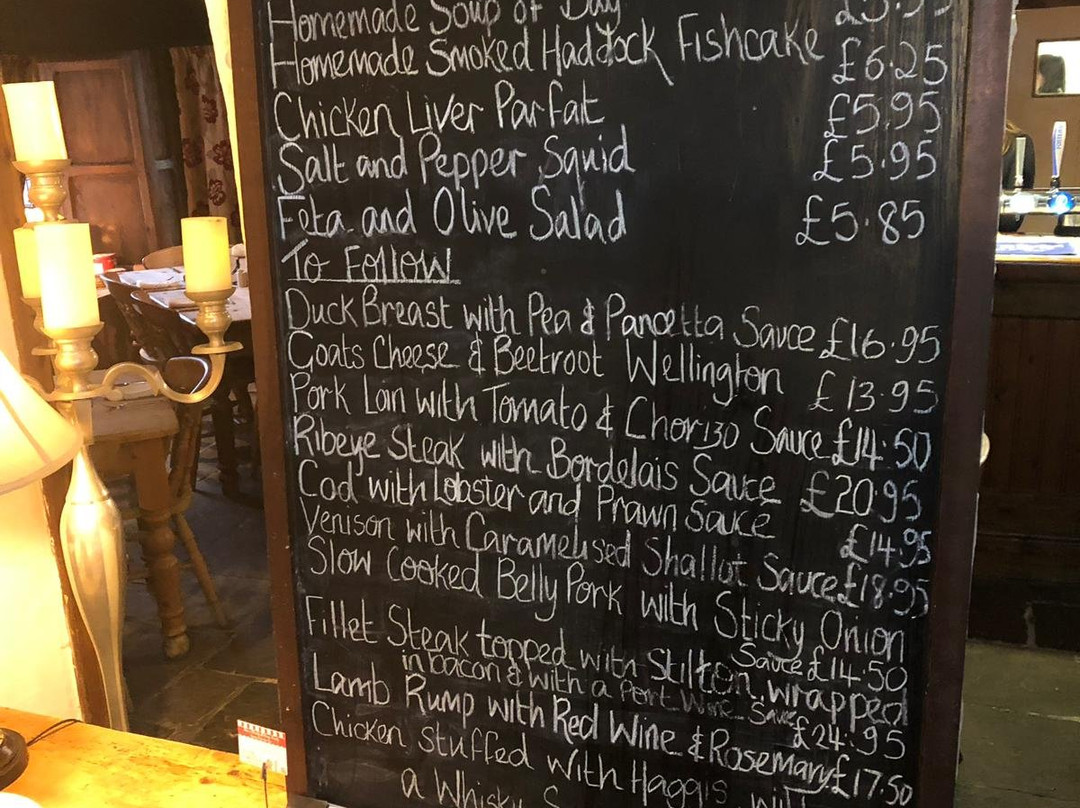 Homemade Soup of Day
Homemade Smoked Haddock Fishcake £6.25
Chicken Liver Parfait £5.95
Salt and Pepper Squid £5.95
Feta and Olive Salad £5.85
To Follow
Duck Breast with Pea & Pancetta Sauce £16.95
Goats Cheese & Beetroot Wellington £13.95
Pork Loin with Tomato & Chorizo Sauce £14.50
Ribeye Steak with Bordelais Sauce £20.95
Cod with Lobster and Prawn Sauce £14.95
Venison with Caramelised Shallot Sauce £18.95
Slow Cooked Belly Pork with Sticky Onion
Sauce £14.50
Fillet Steak topped with Stilton, wrapped
in bacon & with a Port Wine Sauce £24.95
Lamb Rump with Red Wine & Rosemary £17.50
Chicken stuffed with Haggis with
a Whisky